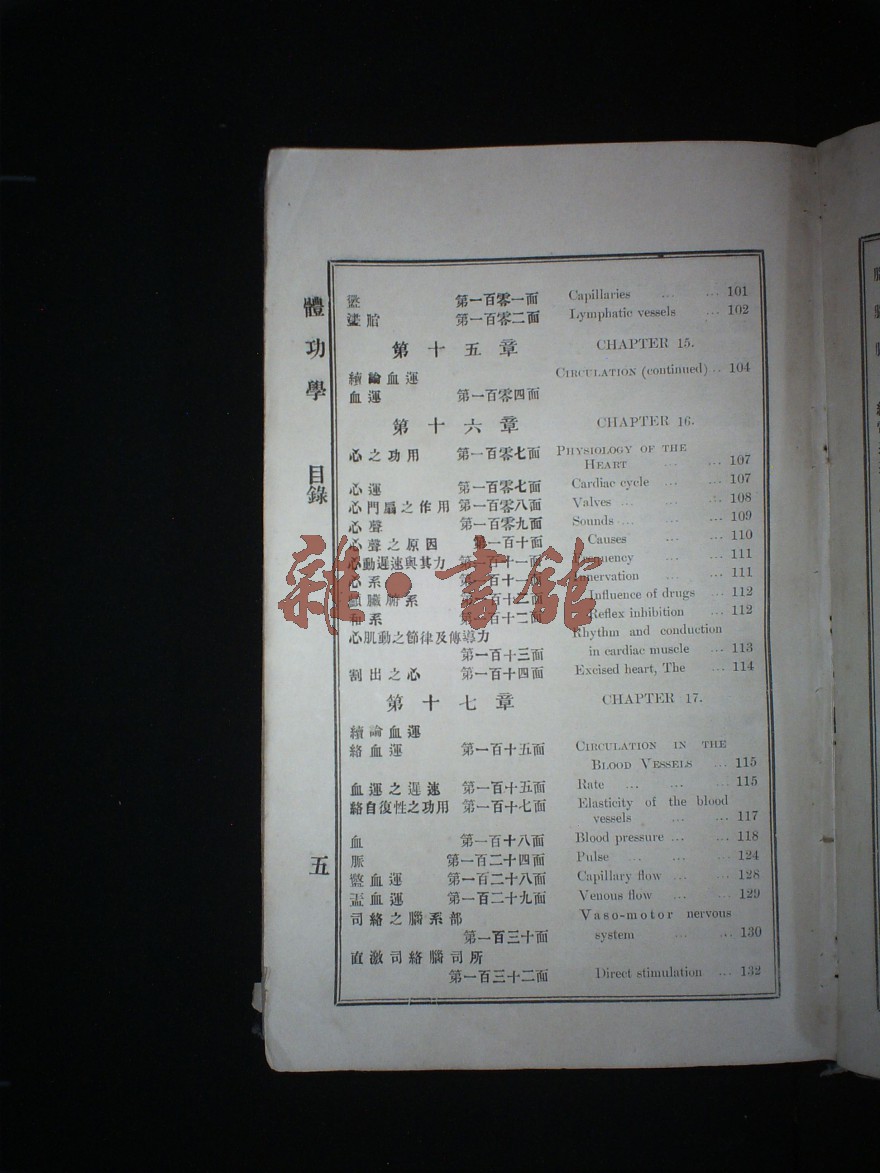 體功學 目錄 五
第一百零一面 Capillaries ... ... 101
第一百零二面 Lymphatic vessels ... 102
第十五章 CHAPTER 15.
續論血運 CIRCULATION (continued) .. 104
血運 第一百零四面
第十六章 CHAPTER 16.
心之功用 第一百零七面 PHYSIOLOGY OF THE
HEART ... ... 107
心運 第一百零七面 Cardiac cycle ... ... 107
心門扇之作用 第一百零八面 Valves ... ... ... 108
心聲 第一百零九面 Sounds ... ... ... 109
心聲之原因 第一百十面 Causes ... ... 110
心動遲速與其力 第一百十一面 Frequency ... ... 111
心系 第一百十一面 Innervation ... ... 111
臟腑系 第一百十二面 Influence of drugs ... 112
和系 第一百十二面 Reflex inhibition ... 112
心肌動之節律及傳導力 Rhythm and conduction
第一百十三面 in cardiac muscle ... 113
割出之心 第一百十四面 Excised heart, The ... 114
第十七章 CHAPTER 17.
續論血運
絡血運 第一百十五面 CIRCULATION IN THE
BLOOD VESSELS ... 115
血運之遲速 第一百十五面 Rate ... ... ... 115
絡自復性之功用 第一百十七面 Elasticity of the blood
vessels ... ... 117
血 第一百十八面 Blood pressure ... ... 118
脈 第一百二十四面 Pulse ... ... ... 124
血運 第一百二十八面 Capillary flow ... ... 128
血運 第一百二十九面 Venous flow ... ... 129
司絡之腦系部 Vaso-motor nervous
第一百三十面 system ... ... 130
直激司絡腦司所
第一百三十二面 Direct stimulation ... 132
雜·書館